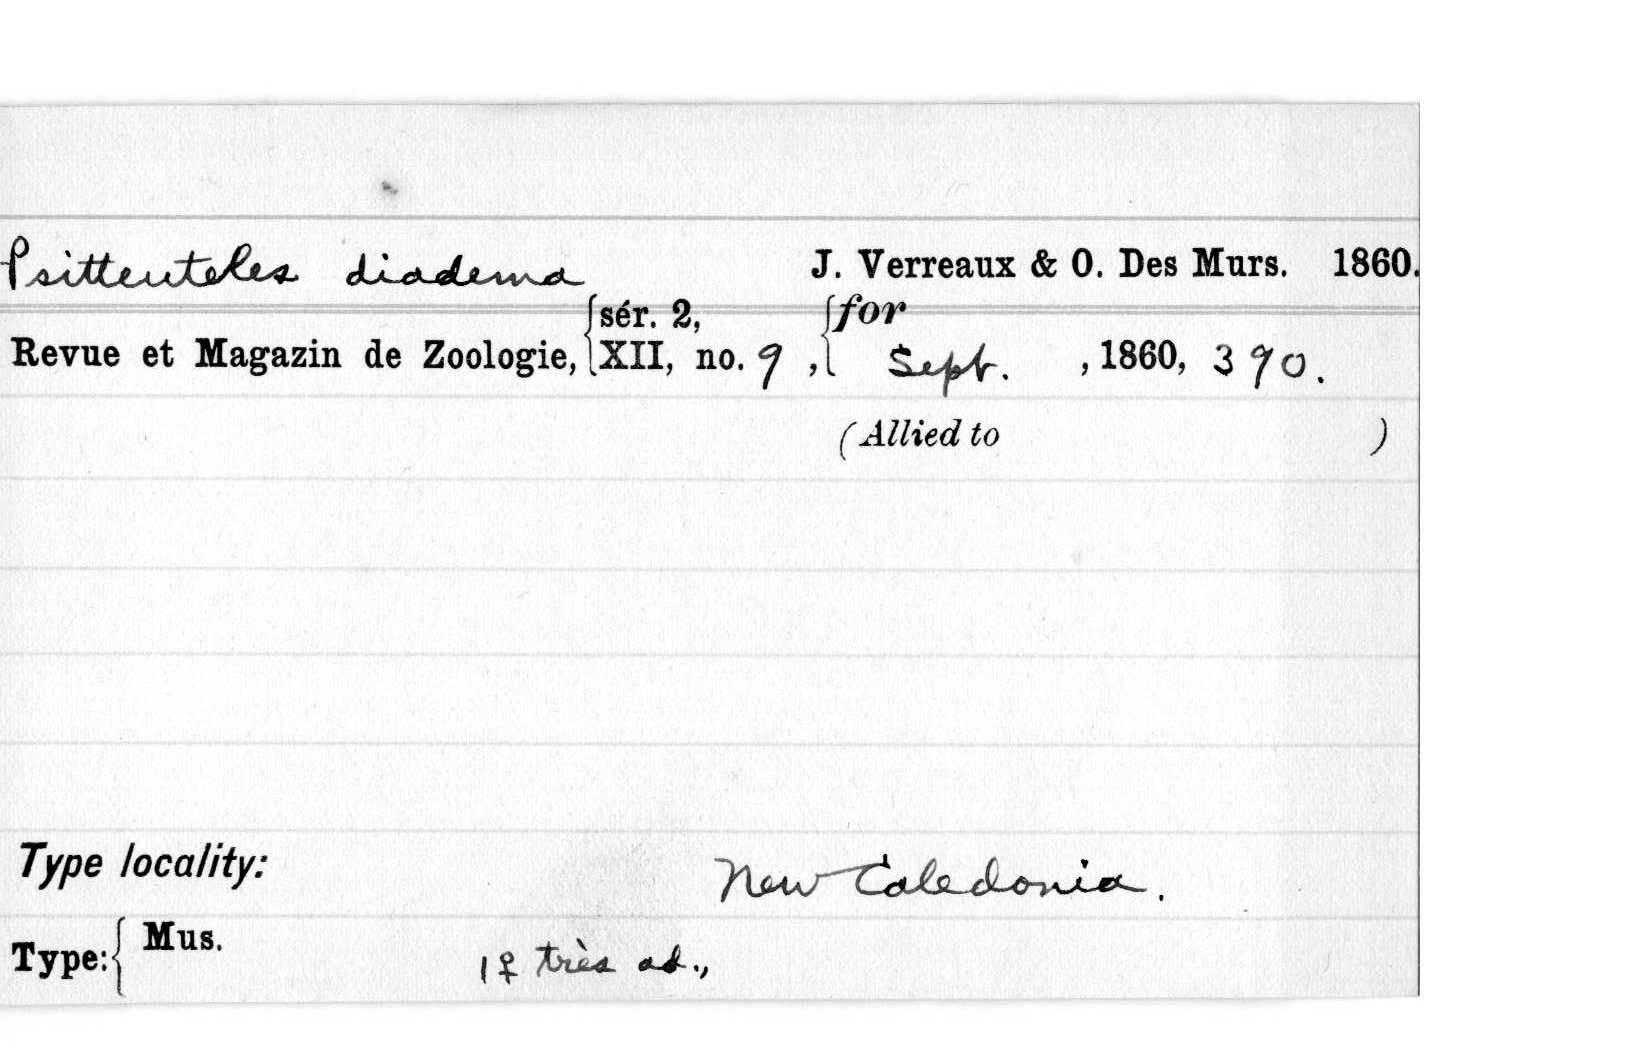 Psitteuteles diadema J. Verreaux & O. Des Murs. 1860.
Revue et Magazin de Zoologie, {sér. 2, XII, no. 9, {for Sept., 1860, 390.
(Allied to )
Type locality: New Caledonia.
Type: { Mus. 1♀ très ad.,